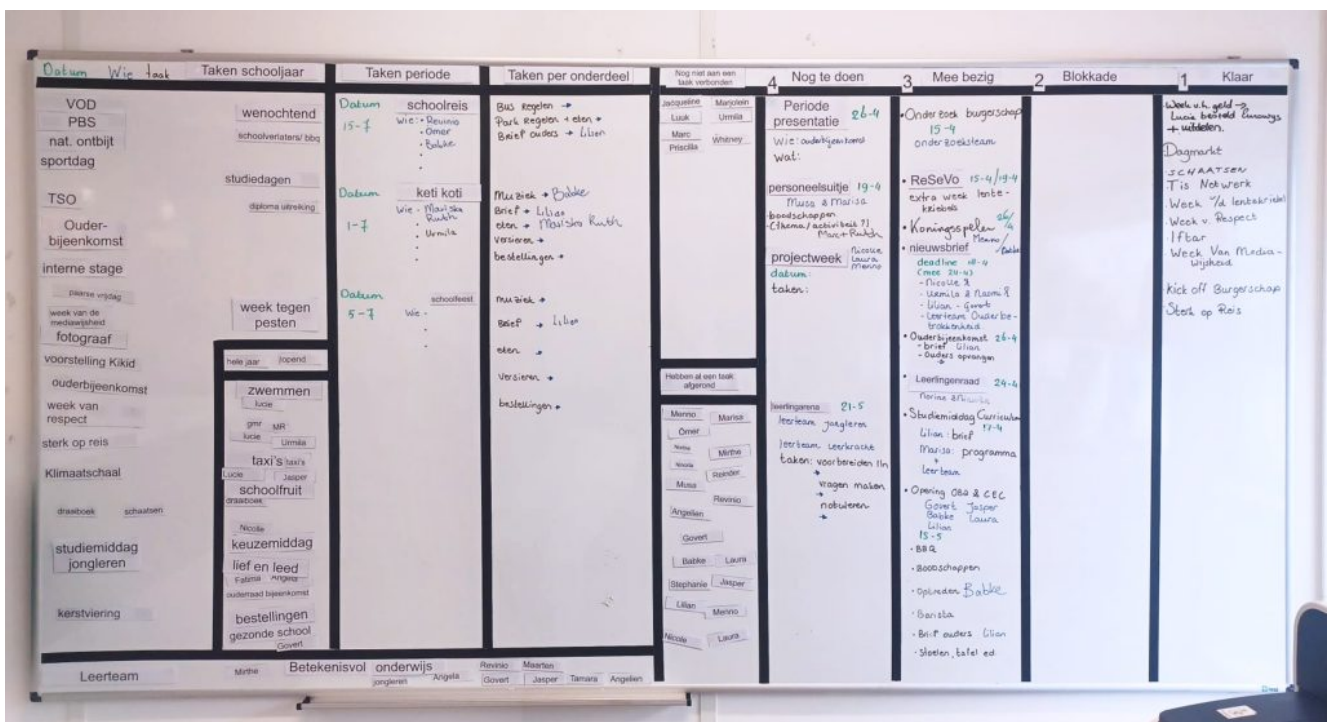 Datum Wie taak
Taken schooljaar
VOD
PBS
nat. ontbijt
sportdag
TSO
Ouder-
bijeenkomst
interne stage
paarse vrijdag
week van de
mediawijsheid
fotograaf
voorstelling Kikid
ouderbijeenkomst
week van
respect
sterk op reis
Klimaatschaal
draaiboek schaatsen
studiemiddag
jongleren
kerstviering
wenochtend
schoolverlaters/ bbq
studiedagen
diploma uitreiking
week tegen
pesten
hele jaar lopend
zwemmen
lucie
gmr MR
lucie Urmila
taxi's taxi's
Lucie Jasper
schoolfruit
draaiboek
Nicolle
keuzemiddag
lief en leed
Fatima Angela
ouderraad bijeenkomst
bestellingen
gezonde school
Govert
Taken periode
Datum schoolreis
15-7 Wie: • Revinio
• Omer
• Babke
Datum keti koti
1-7 Wie - Maviska
Ruth
- Urmila
Datum schoolfeest
5-7 Wie -
Taken per onderdeel
Bus Regelen →
Park Regelen + eten →
Brief ouders → Lilian
Muziek → Babke
Brief → Lilian
eten → Maviska Ruth
versieren →
bestellingen →
muziek →
Brief → Lilian
eten →
Versieren →
bestellingen →
Nog niet aan een
taak verbonden
Jacqueline Marjolein
Luuk Urmila
Marc Whitney
Priscilla
Hebben al een taak
afgerond
Menno Marisa
Omer
Mirthe
Reinder
Musa
Revinio
Angelien
Govert
Babke Laura
Stephanie Jasper
Lilian Menno
Nicole Laura
4 Nog te doen
Periode
presentatie 26-4
Wie: ouderbijeenkomst
wat:
personeelsuitje 19-4
Musa & Marisa
-boodschappen
-(thema/activiteit?)
Marc + Ruth
projectweek Nicolle
Laura
Menno
datum:
taken:
leerlingarena 21-5
leerteam jongleren
leerteam Leerkracht
taken: voorbereiden lln
→
vragen maken
→
notuleren
→
3 Mee bezig
• Onderzoek burgerschap
15-4
onderzoeksteam
• ReSeVo 15-4/19-4
extra week lente-
kriebels
• Koningsspelen 26/4
Menno/Babke
• nieuwsbrief
deadline 18-4
(mee 24-4)
- Nicolle
- Urmila & Naomi
- Lilian - Govert
- Leerteam Ouderbe-
trokkenheid
• Ouderbijeenkomst 26-4
- brief Lilian
- Ouders opvangen
• Leerlingenraad 24-4
• Studiemiddag Curriculum
17-4
Lilian: brief
Marisa: programma
+
Leerteam
• Opening OBA & CEC
Govert Jasper
Babke Laura
Lilian
15-5
• BBQ
• Boodschappen
• Optreden Babke
• Barista
• Brief ouders Lilian
• Stoelen, tafel ed.
2 Blokkade
1 Klaar
Week v.h. geld →
+ uitdelen.
Dagmarkt
SCHAATSEN
Tis Netwerk
Week v/d lentekriebel
Week v. Respect
Iftar
Week Van Media-
wijsheid
Kick off Burgerschap
Sterk op Reis
Leerteam
Mirthe Betekenisvol onderwijs Revinio Maarten
jongleren Angela Govert Jasper Tamara Angelien